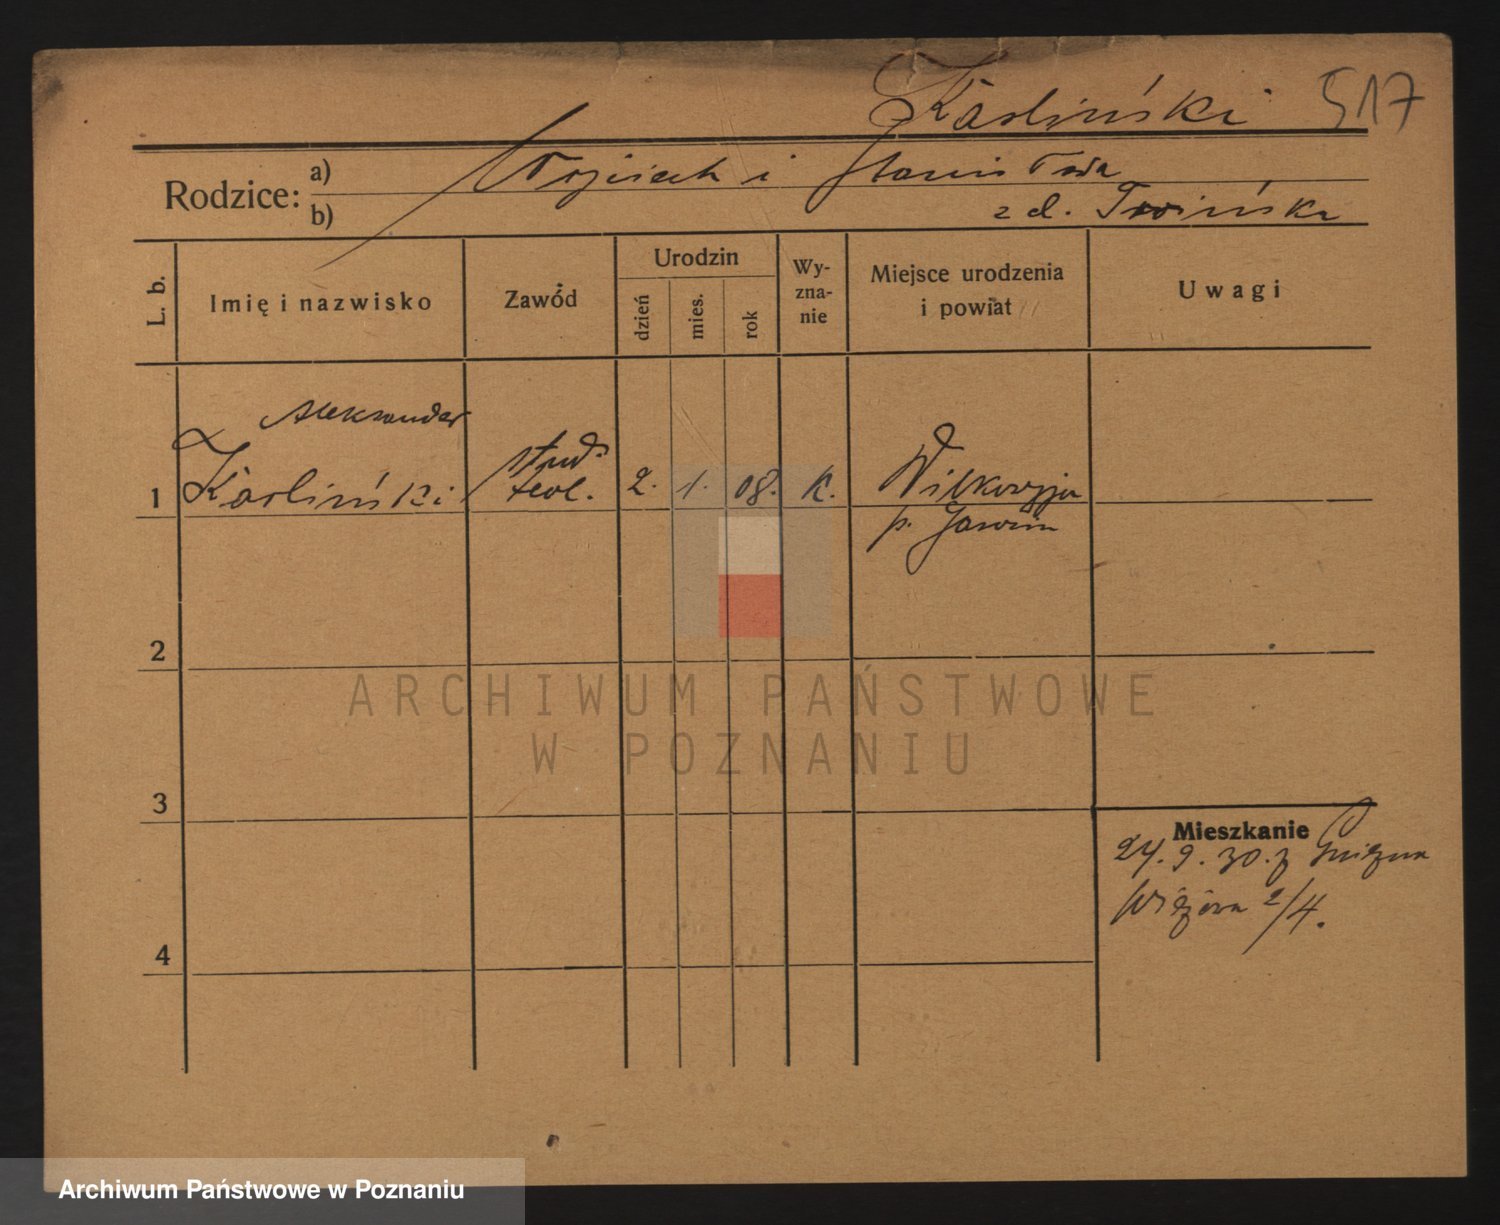 Karliński 517
Rodzice: a) Wojciech i Stanisława
b) z d. Twińska
L. b.
Imię i nazwisko
Zawód
Urodzin
dzień
mies.
rok
Wy-
zna-
nie
Miejsce urodzenia
i powiat
Uwagi
Aleksander
1 Karliński stud. teol. 2. 1. 08. K. Wilkowyja
p. Jarocin
2
3
4
Mieszkanie
24. 9. 30. z Gniezna
Wieżowa 2/4.
ARCHIWUM PAŃSTWOWE
W POZNANIU
Archiwum Państwowe w Poznaniu